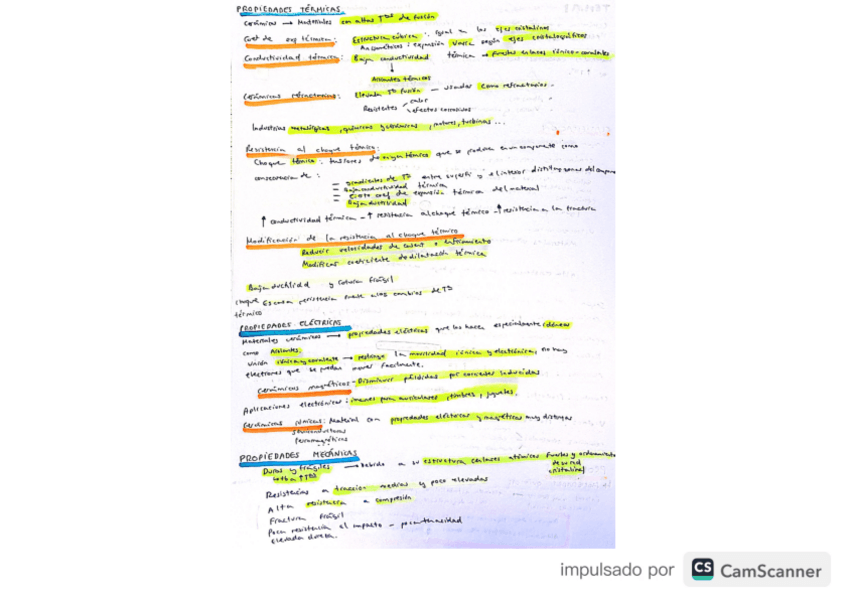 PROPIEDADES TÉRMICAS
Cerámicos → Materiales con altas Tª de fusión
Coef de exp térmica: Estructura cúbica: igual en los ejes cristalinos
Anisométricos: expansión varía según ejes cristalográficos
Conductividad térmica: Baja conductividad térmica → fuertes enlaces iónico-covalentes
Aislantes térmicos
Cerámicas refractarias: Elevada Tª fusión → usadas como refractarios.
Resistentes calor
efectos corrosivos
Industrias metalúrgicas, químicas y cerámicas, motores, turbinas...
Resistencia al choque térmico:
Choque térmico: tensiones de origen térmico que se producen en un componente como
consecuencia de:
— gradientes de Tª entre superf. y el interior distintas zonas del
— Baja conductividad térmica
— coef de expansión térmica del material
— Baja ductilidad
↑ conductividad térmica - ↑ resistencia al choque térmico - ↑ resistencia a la fractura
Modificación de la resistencia al choque térmico
Reducir velocidades de o enfriamiento
Modificar coeficiente de dilatación térmica
Baja ductilidad y rotura frágil
choque Escasa resistencia frente a los cambios de Tª
térmico
PROPIEDADES ELÉCTRICAS
Materiales cerámicos → propiedades eléctricas que los hacen especialmente idóneos
como Aislantes.
Unión iónica y covalente → restringe la movilidad iónica y electrónica, no hay
electrones que se puedan mover facilmente.
Cerámicas magnéticas - Disminuir pérdidas por corrientes inducidas
Aplicaciones electrónicas: imanes para auriculares, timbres, juguetes.
Cerámicas : Material con propiedades eléctricas y magnéticas muy distintas
semiconductores
ferromagnéticos
PROPIEDADES MECÁNICAS
Duros y frágiles → Debido a su estructura enlaces atómicos fuertes y ordenamiento
↑Tª
de su red
cristalina
Resistencias a tracción medias y poco elevadas
Alta resistencia a compresión
Fractura frágil
Poca resistencia al impacto - poca tenacidad
Elevada dureza.
impulsado por CS CamScanner